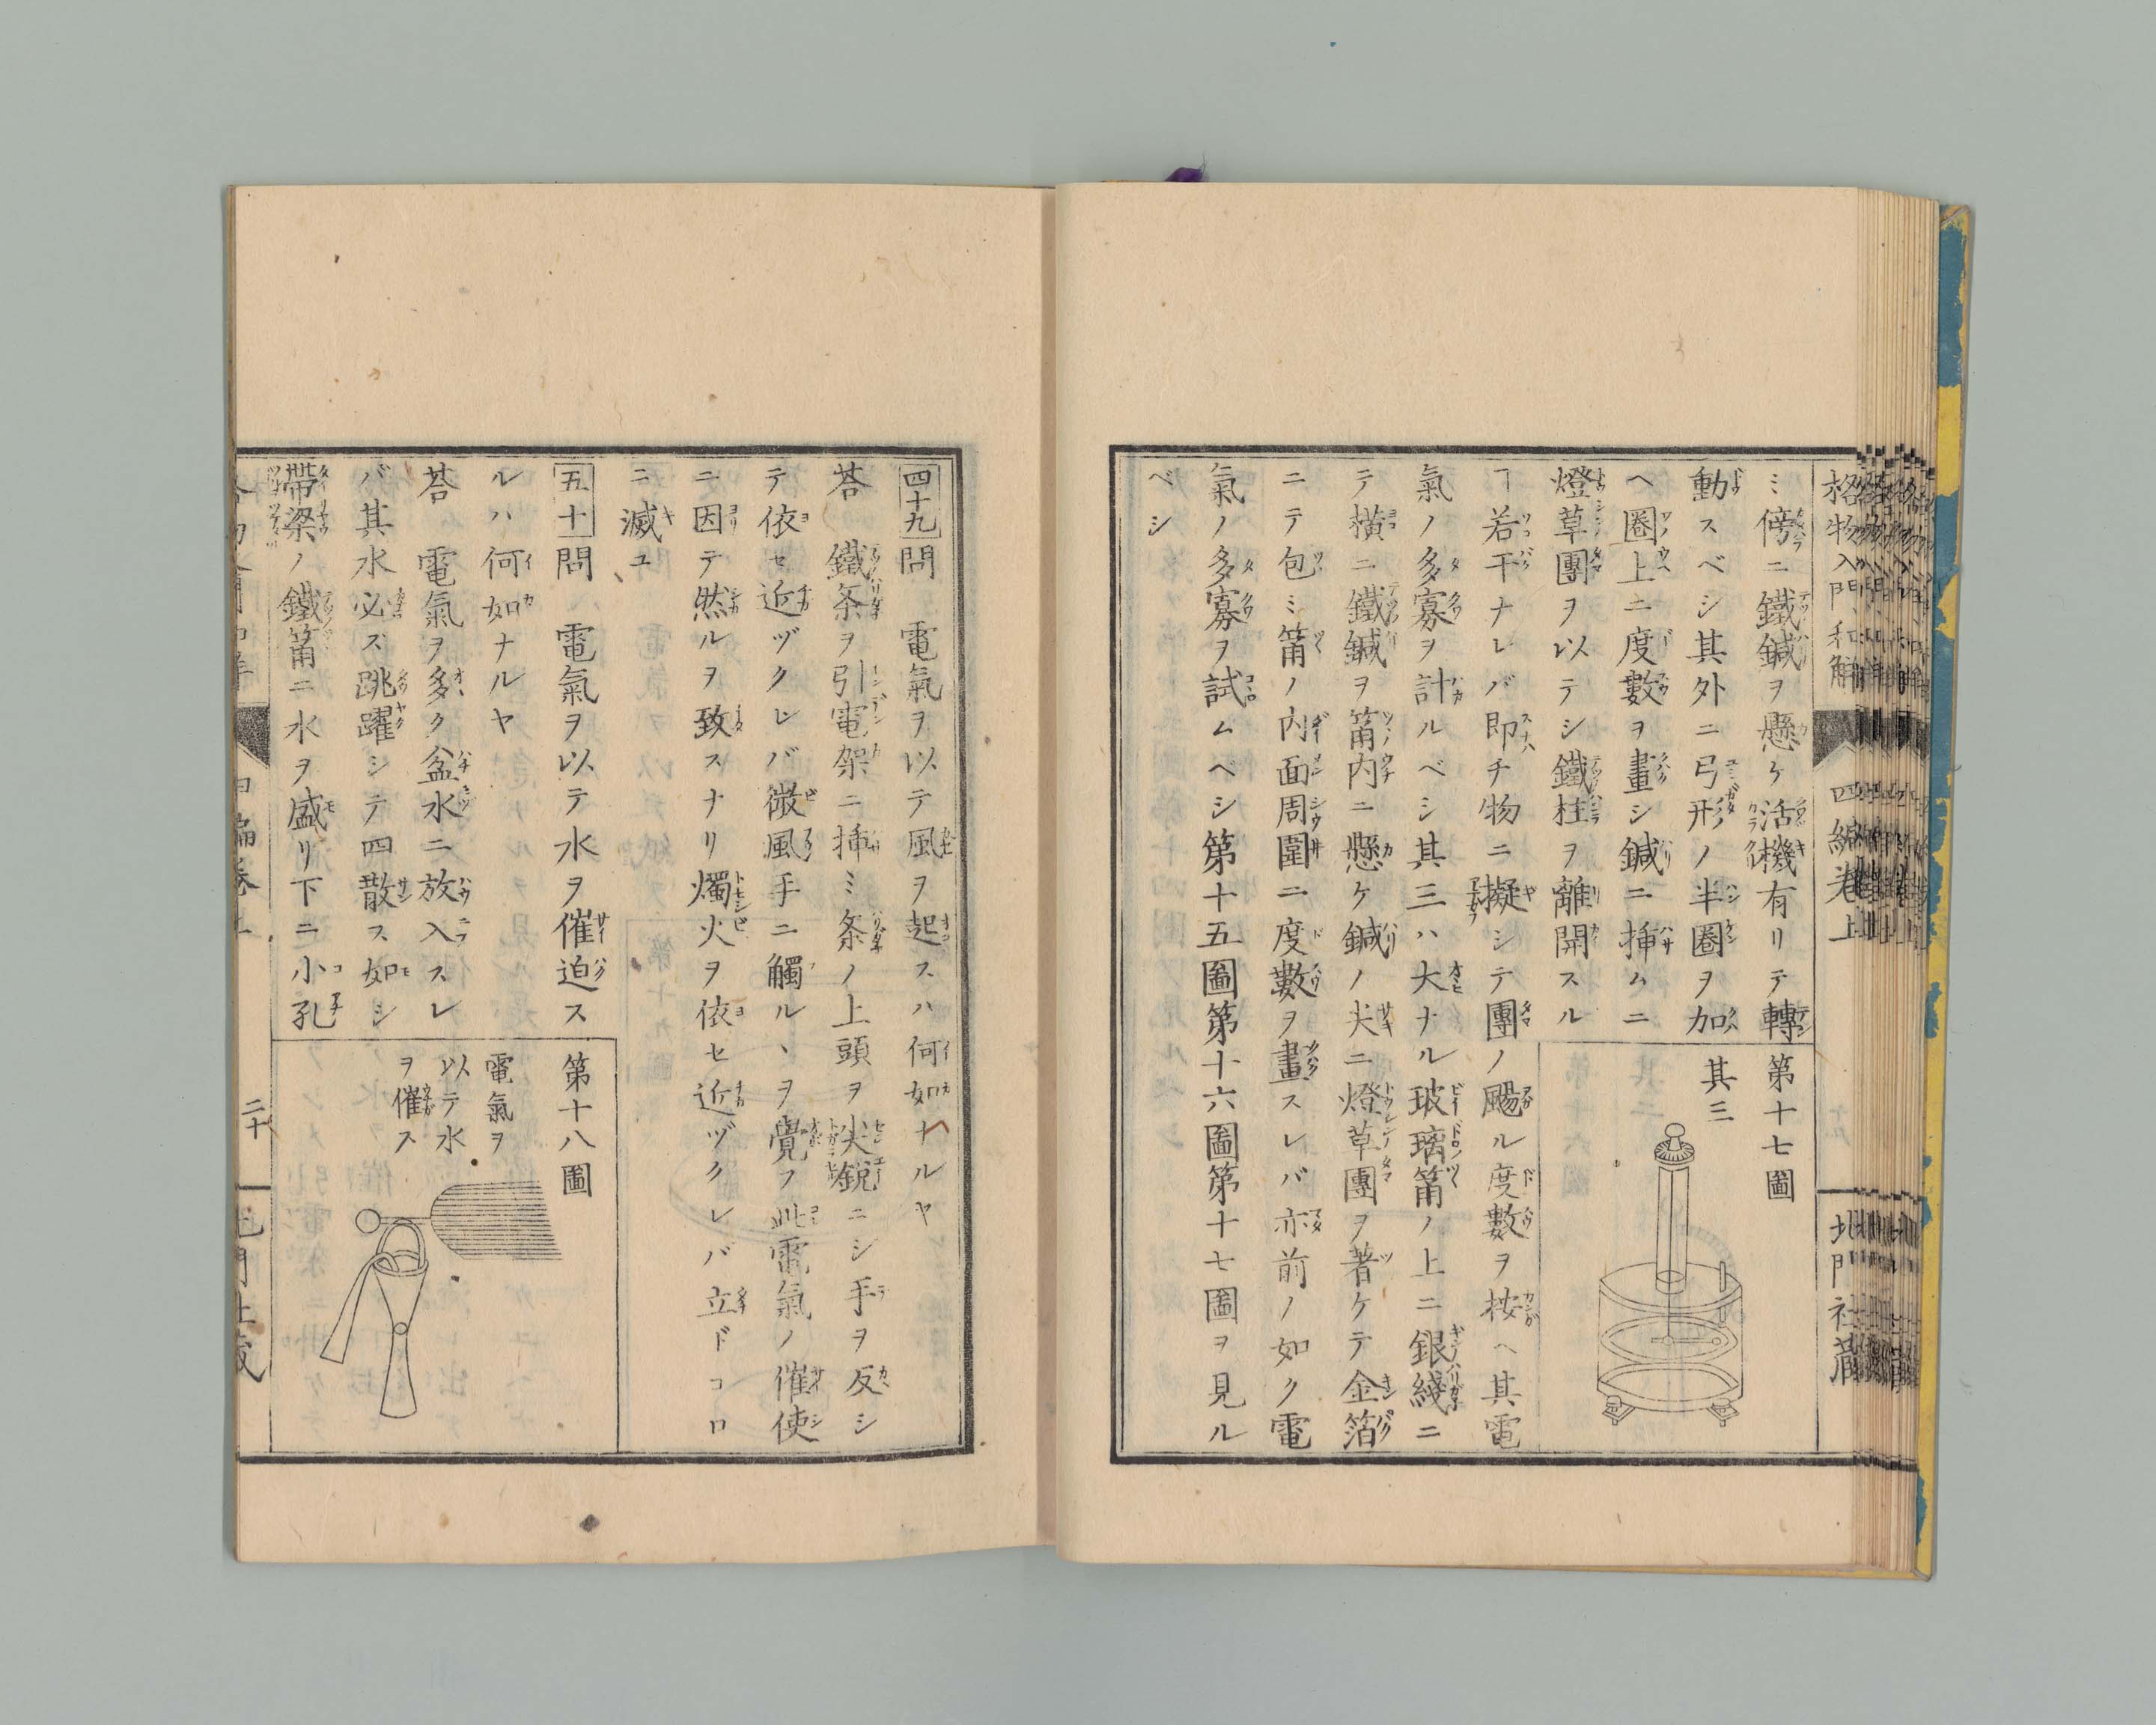 格物入門和解 四編巻上 北門社蔵
ミ傍ニ鐵鍼ヲ懸ケ活機有リテ轉
動スベシ其外ニ弓形ノ半圏ヲ加
ヘ圏上ニ度數ヲ畫シ鍼ニ挿ムニ
燈草團ヲ以テシ鐵柱ヲ離開スル
ヿ若干ナレバ即チ物ニ擬シテ團ノ颺ル度數ヲ按ヘ其電
氣ノ多寡ヲ計ルベシ其三ハ大ナル玻璃筩ノ上ニ銀綫ニ
テ横ニ鐵鍼ヲ筩内ニ懸ケ鍼ノ尖ニ燈草團ヲ著ケテ金箔
ニテ包ミ筩ノ内面周圍ニ度數ヲ畫スレバ亦前ノ如ク電
氣ノ多寡ヲ試ムベシ第十五圖第十六圖第十七圖ヲ見ル
ベシ
第十七圖
其三
四十九問 電氣ヲ以テ風ヲ起スハ何如ナルヤ
荅 鐵条ヲ引電架ニ挿ミ条ノ上頭ヲ尖鋭ニシ手ヲ反シ
テ依セ近ヅクレバ微風手ニ觸ルヽヲ覺フ此電氣ノ催使
ニ因テ然ルヲ致スナリ燭火ヲ依セ近ヅクレバ立ドコロ
ニ滅ユ
五十問 電氣ヲ以テ水ヲ催迫ス
ルハ何如ナルヤ
荅 電氣ヲ多ク盆水ニ放入スレ
バ其水必ズ跳躍シテ四散ス如シ
帶梁ノ鐵筩ニ水ヲ盛リ下ニ小孔
第十八圖
電氣ヲ
以テ水
ヲ催ス
四編巻上 二十 北門社蔵